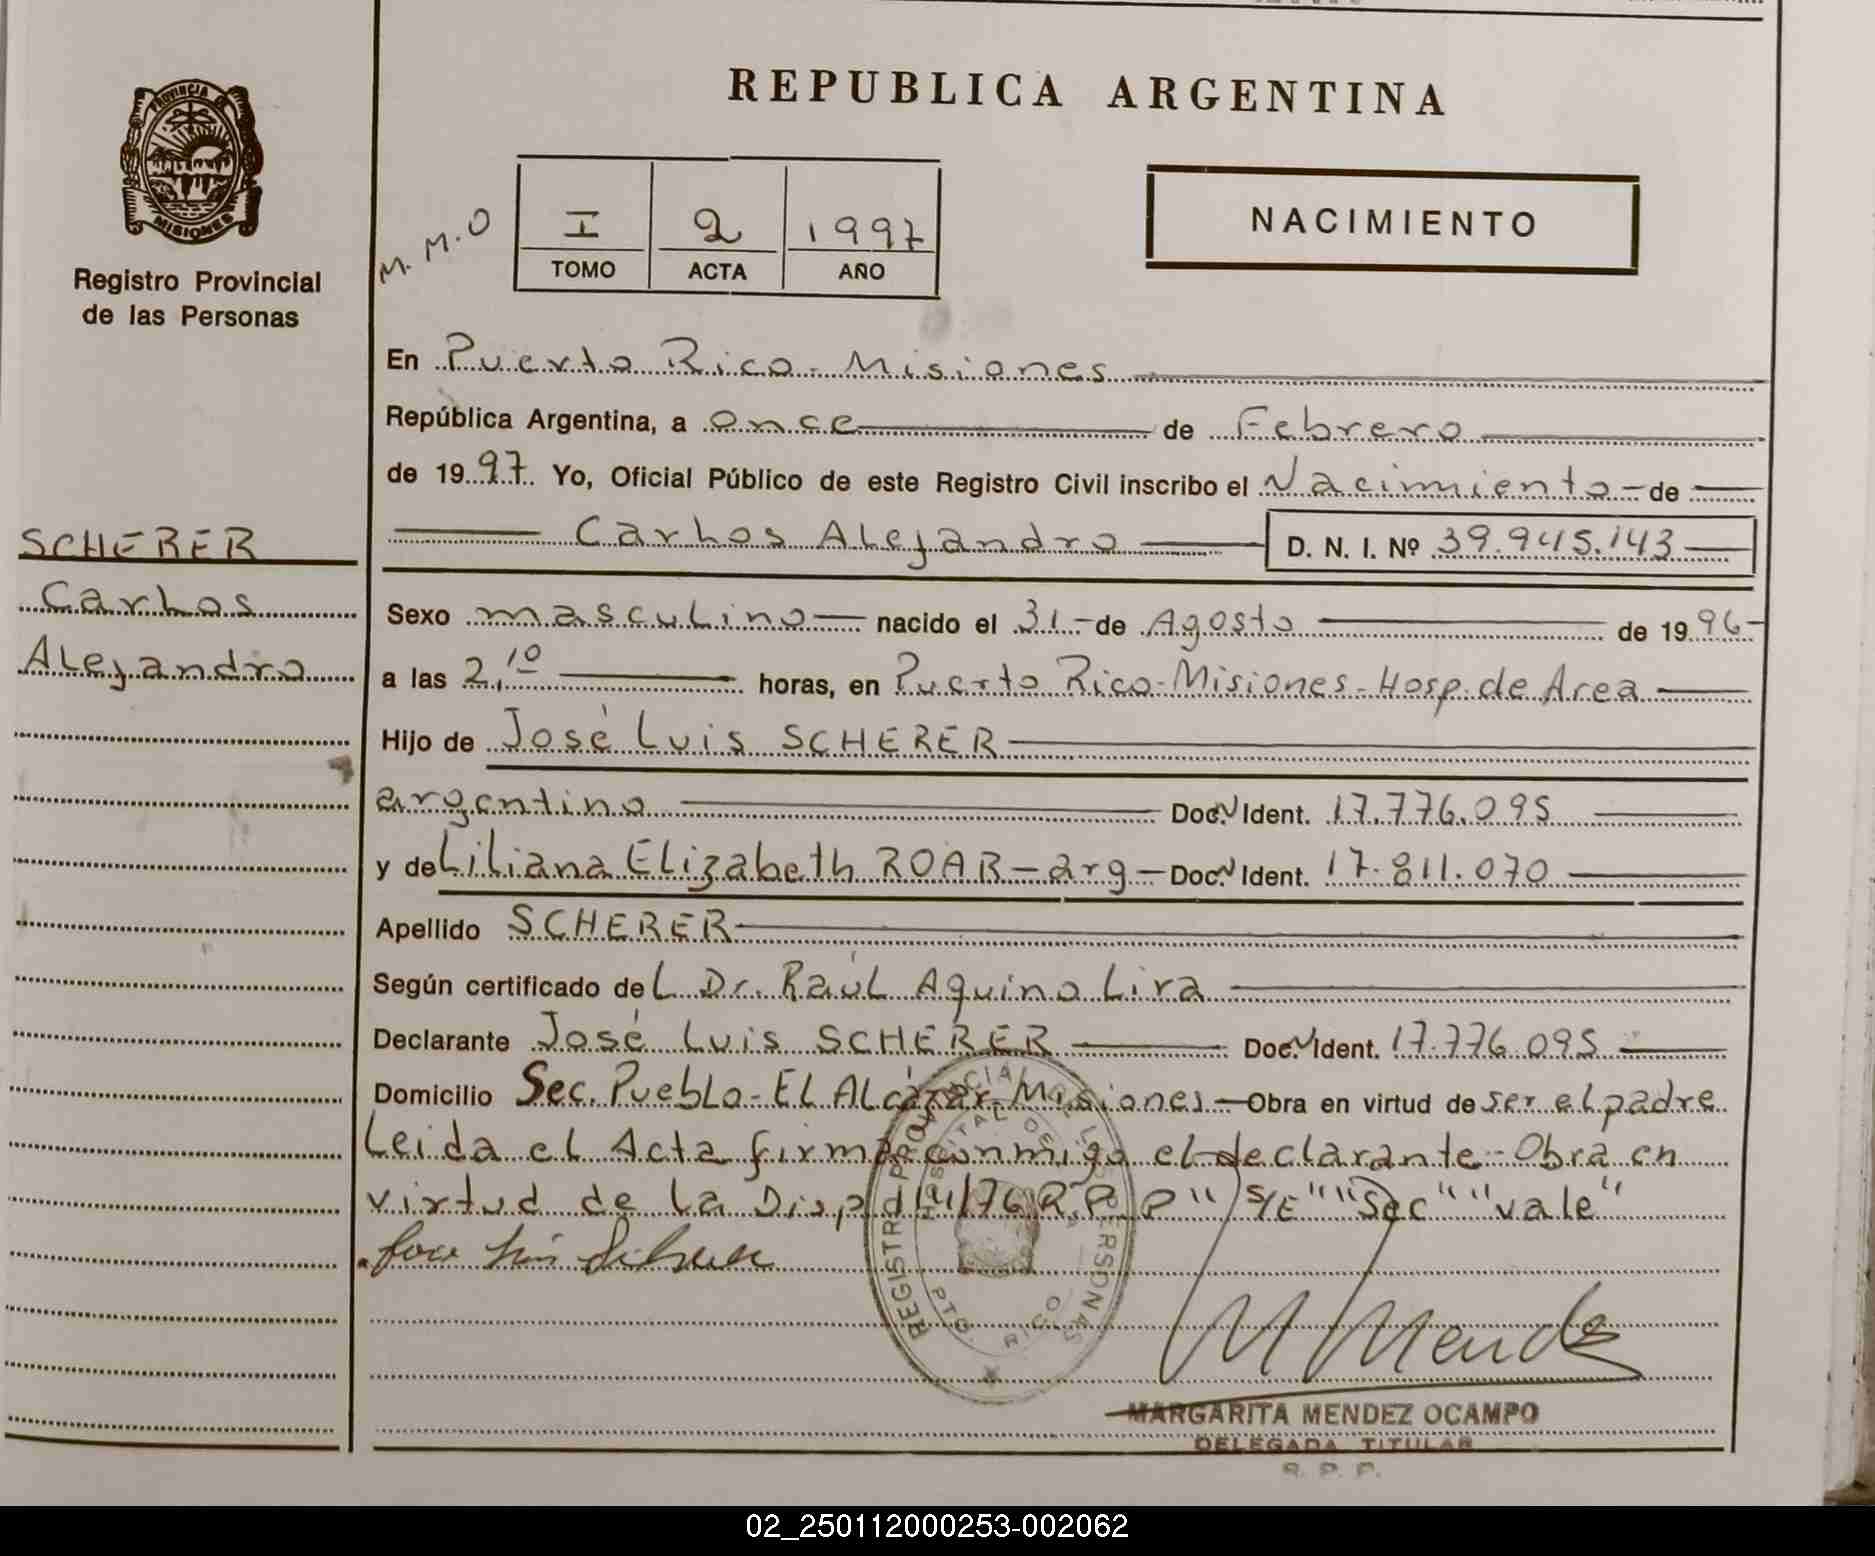 REPUBLICA ARGENTINA
PROVINCIA DE
MISIONES
Registro Provincial
de las Personas
M. M. O
I 2 1997
TOMO ACTA AÑO
NACIMIENTO
En Puerto Rico - Misiones
República Argentina, a once de Febrero
de 1997. Yo, Oficial Público de este Registro Civil inscribo el Nacimiento - de
Carlos Alejandro D. N. I. Nº 39.945.143
SCHERER
Carlos
Alejandro
Sexo masculino nacido el 31 - de Agosto de 1996
a las 2,10 horas, en Puerto Rico - Misiones - Hosp. de Area
Hijo de José Luis SCHERER
argentino Doc. N Ident. 17.776.095
y de Liliana Elizabeth ROAR - arg - Doc. N Ident. 17.811.070
Apellido SCHERER
Según certificado del Dr. Raúl Aquino Lira
Declarante José Luis SCHERER Doc. N Ident. 17.776.095
Domicilio Sec. Pueblo - El Alcázar - Misiones - Obra en virtud de ser el padre
Leida el Acta firma conmigo el declarante - Obra en
virtud de la Disp 14/76 R.P.P" S/E" "Sec" "vale"
REGISTRO PROVINCIAL DE LAS PERSONAS
HOSPITAL DE
PTO. RICO
M Mendez
MARGARITA MENDEZ OCAMPO
DELEGADA TITULAR
R. P. P.
02_250112000253-002062